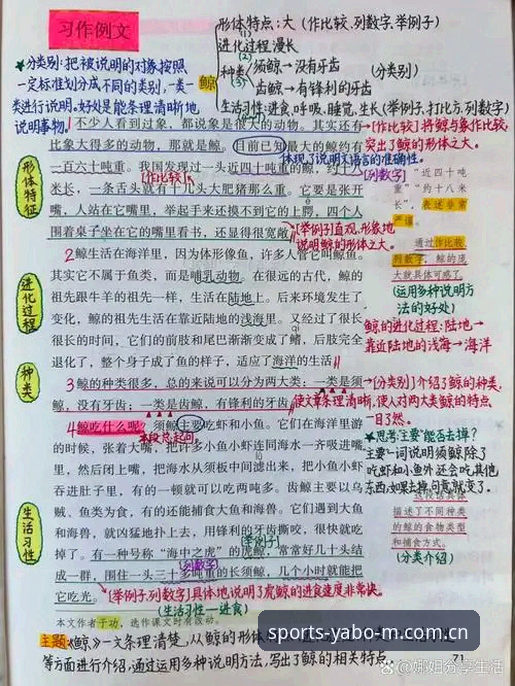 习作例文
形体特点:大(作比较、列数字、举例子)
进化过程 漫长
鲸
种类
(2)
须鲸→没有牙齿
(3)
齿鲸→有锋利的牙齿
(分类别)
生活习性:进食、呼吸、睡觉、生长(举例子、打比方、列数字)
★分类别:把被说明的对象,按照
一定标准划分成不同的类别,一类一
类进行说明。好处是能条理清晰地
说明事物。
1不少人看到过象,都说象是很大的动物。其实还有
比象大得多的动物,那就是鲸。目前已知最大的鲸约有
体现了说明文语言的准确性。
一百六十吨重。我国发现过一头近四十吨重的鲸,约十八
[作比较]
米长,一条舌头就有十几头大肥猪那么重。它要是张开
嘴,人站在它嘴里,举起手来还摸不到它的上腭,四个人
围着桌子坐在它的嘴里看书,还显得很宽敞。
[作比较]将鲸与象作比较,
突出了鲸的形体之大。
[列数字]
“近四十吨
重”“约十八米
长”,表述非常
严谨。
[举例子]直观、形象地
说明鲸的形体之大。
通过作比较、
列数字,鲸的庞
大就具体可感了。
(运用多种说明方法
的好处)
形体特征
2鲸生活在海洋里,因为体形像鱼,许多人管它叫鲸鱼。
其实它不属于鱼类,而是哺乳动物。在很远的古代,鲸的
祖先跟牛羊的祖先一样,生活在陆地上。后来环境发生了
变化,鲸的祖先生活在靠近陆地的浅海里。又经过了很长
很长的时间,它们的前肢和尾巴渐渐变成了鳍,后肢完全
退化了,整个身子成了鱼的样子,适应了海洋的生活。
进化过程
鲸的进化过程:陆地→
靠近陆地的浅海→海洋
3鲸的种类很多,总的来说可以分为两大类:一类是须
鲸,没有牙齿;一类是齿鲸,有锋利的牙齿。
种类
[分类别]介绍了鲸的种类,
使文章条理清晰,使人对两大类鲸的特点
一目了然。
4鲸吃什么呢?须鲸主要吃虾和小鱼。它们在海洋里游
的时候,张着大嘴,把许多小鱼小虾连同海水一齐吸进嘴
里,然后闭上嘴,把海水从须板中间滤出来,把小鱼小虾
吞进肚子里,有的一顿就可以吃两吨多。齿鲸主要以乌
贼、鱼类为食,有的还能捕食大鱼和海兽。它们遇到大鱼
和海兽,就凶猛地扑上去,用锋利的牙齿撕咬,很快就吃
掉了。有一种号称“海中之虎”的虎鲸,常常好几十头结
[举例子]
成一群,围住一头三十多吨重的长须鲸,几个小时就能把
[列数字]
它吃光。
[举例子、列数字]具体地说明了虎鲸的进食速度非常快。
(生活习性—进食)
生活习性
★思考:“主要”能否去掉?
主要一词说明须鲸除了
吃虾和小鱼外还会吃其他
东西,如果去掉,句意就变了。
描述了不同种类
的鲸的食物类型
和捕食方式。
(分类介绍)
本文作者于功,选作课文时有改动。
主题:《鲸》一文条理清楚,从鲸的形体
等方面进行介绍,通过运用多种说明方法,写出了鲸的相关特点。
sports-yabo-m.com.cn
71
@娜姐分享生活